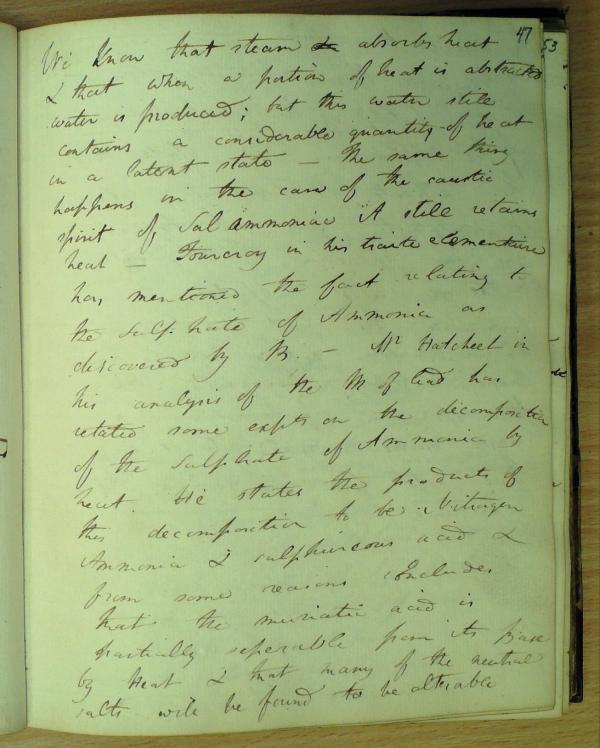 47
53
We know that steam absorbs heat
& that when a portion of heat is abstracted
water is produced; but this water still
contains a considerable quantity of heat
in a latent state — the same thing
happens in the case of the caustic
spirit of Sal ammoniac it still retains
heat — Fourcroy in his traité elementaire
has mentioned the fact relating to
the Sulphate of Ammonia as
discovered by B. — Mr Hatchett in
his analysis of the M of lead has
related some expts on the decomposition
of the Sulphate of Ammonia by
heat. He states the products of
this decomposition to be Nitrogen
Ammonia & sulphureous acid &
from some reasons concludes
that the muriatic acid is
partially seperable from its base
by heat & that many of the neutral
salts will be found to be alterable